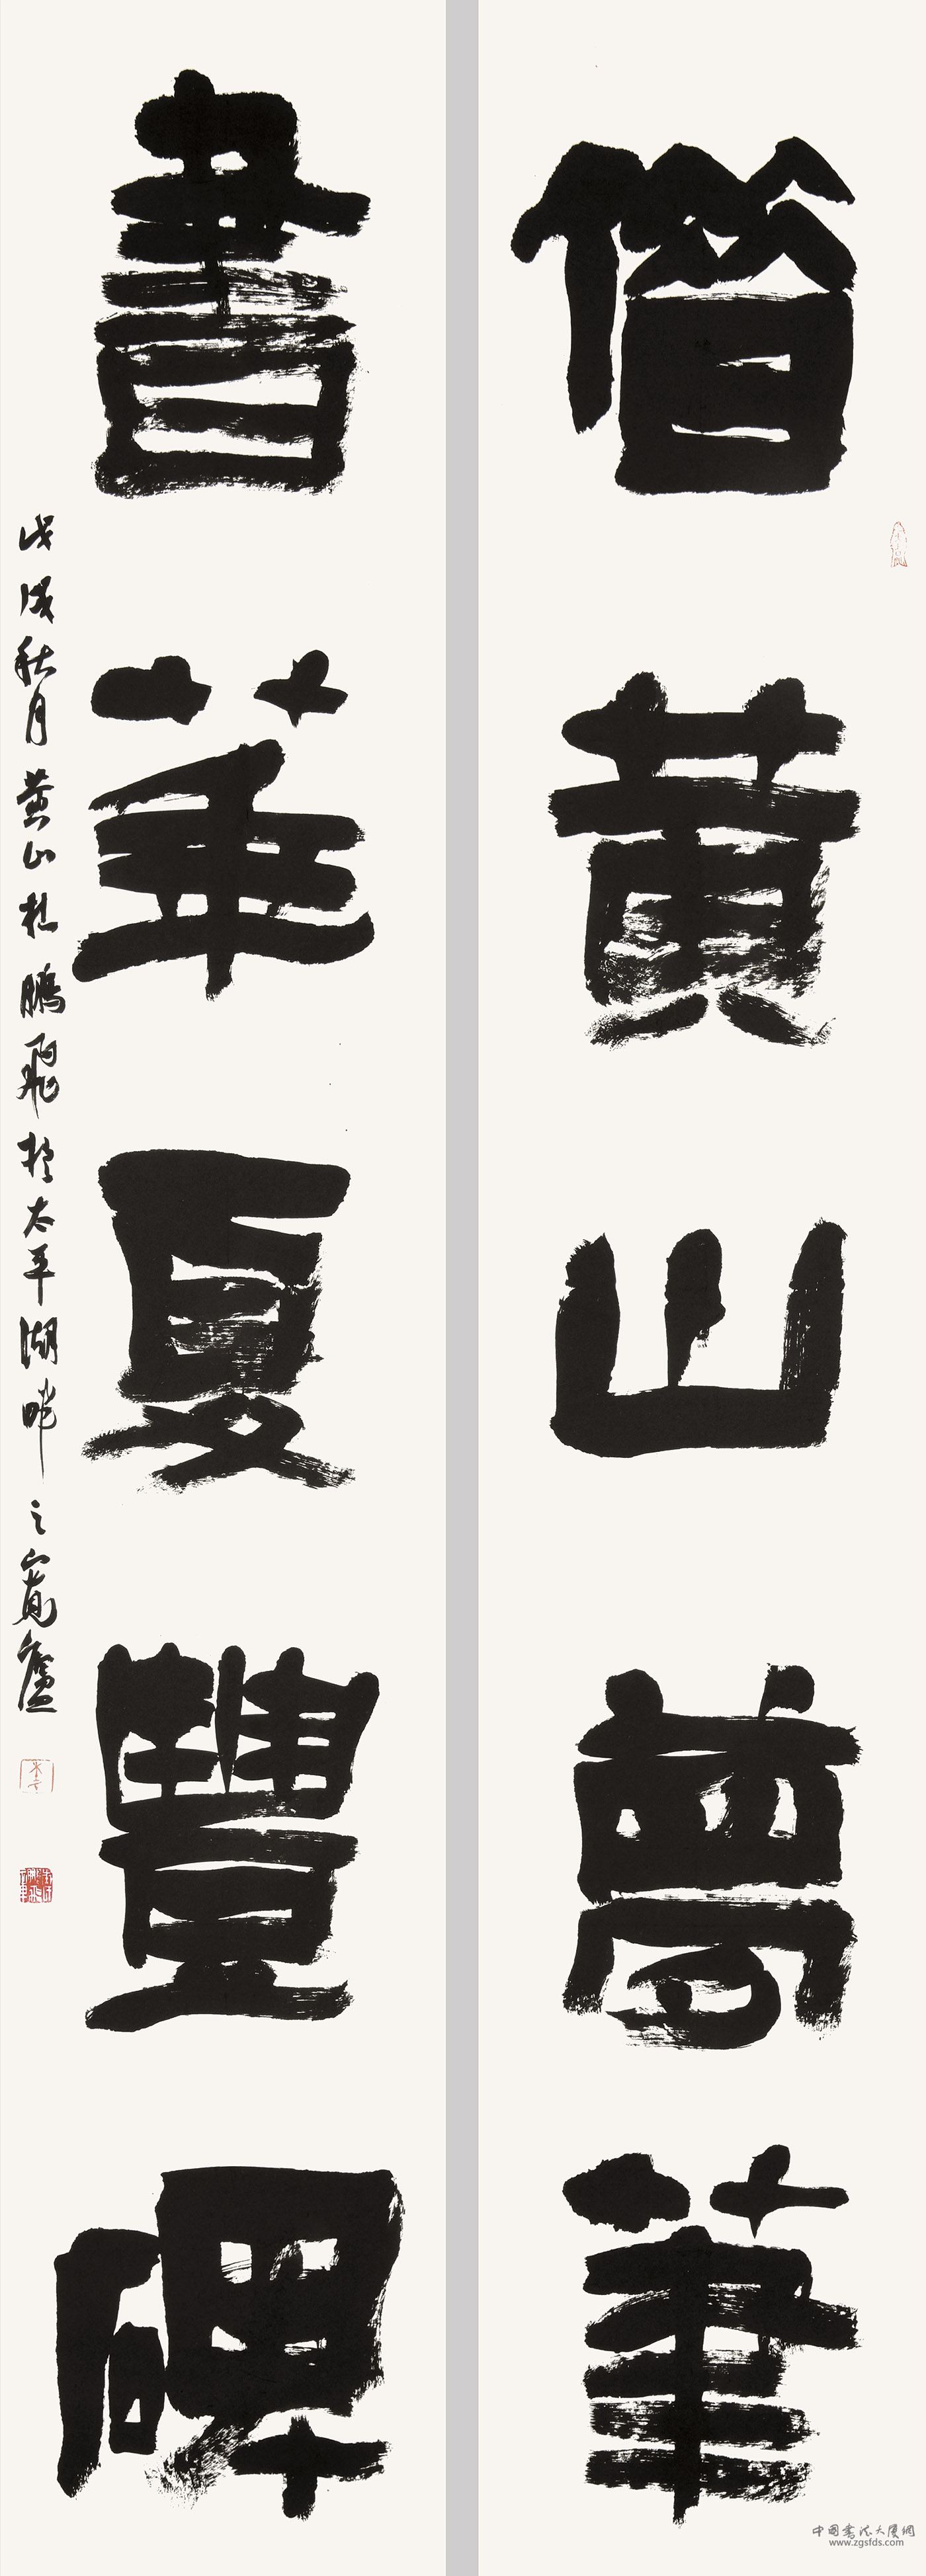 借黄山夢筆
書華夏豐碑
戊戌秋月黄山杜鵬飛於太平湖畔之寬廬
中国書法大厦網
www.zgsfds.com